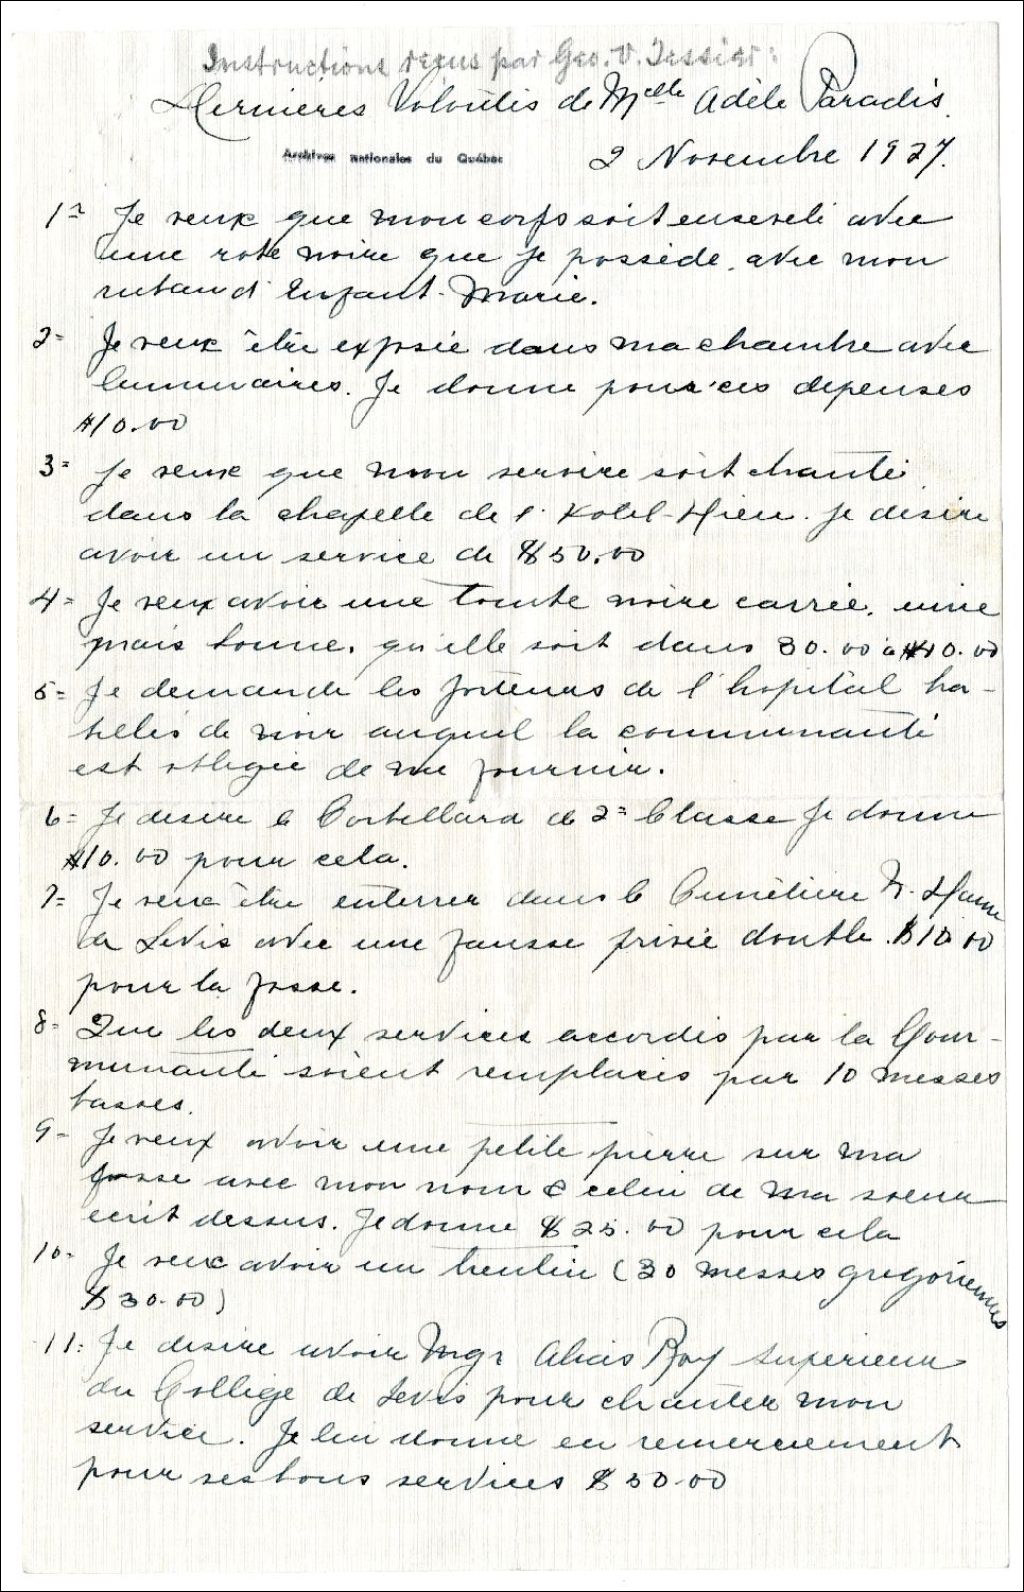 Instructions reçus par Geo. V. Tessier:
Dernières Volontés de Melle Adèle Paradis.
Archives nationales du Québec
2 Novembre 1927.
1- Je veux que mon corps soit enseveli avec
une robe noire que je possède, avec mon
ruban d'Enfant-Marie.
2= Je veux être exposée dans ma chambre avec
luminaires. Je donne pour ces depenses
$10.00
3= Je veux que mon service soit chanté
dans la chapelle de l'Hotel-Dieu. Je desire
avoir un service de $50.00
4= Je veux avoir une tombe noire carrée, unie
mais bonne, qu'elle soit dans 30.00 à $40.00
5= Je demande les porteurs de l'hopital ha-
billés de noir auquel la communauté
est obligée de me fournir.
6= Je desire le Corbillard de 2= Classe Je donne
$10.00 pour cela.
7= Je veux être enterrer dans le Cimetière N. Dame
de Levis avec une fausse privée double. $10.00
pour la fosse.
8= Que les deux services accordés par la Com-
munauté soient remplacés par 10 messes
basses.
9- Je veux avoir une petite pierre sur ma
fosse avec mon nom & celui de ma soeur
ecrit dessus. Je donne $25.00 pour cela
10- Je veux avoir un trentin (30 messes gregoriennes
$30.00)
11= Je desire avoir Mgr Alias Roy Superieur
du College de Levis pour chanter mon
service. Je lui donne en remerciement
pour ses bons services $50.00